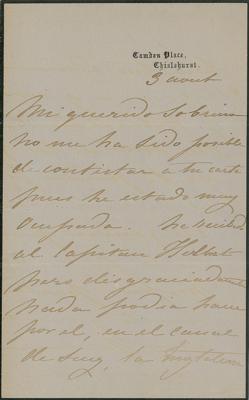 Camden Place,
Chislehurst.
3 aout
Mi querido Sobrino
no me ha sido posible
de contestar a tu carta
pues he estado muy
Ocupada. he
al Capitan
pero disgraciadamente
nada podia hacer
por el, en el canal
de Suez, la